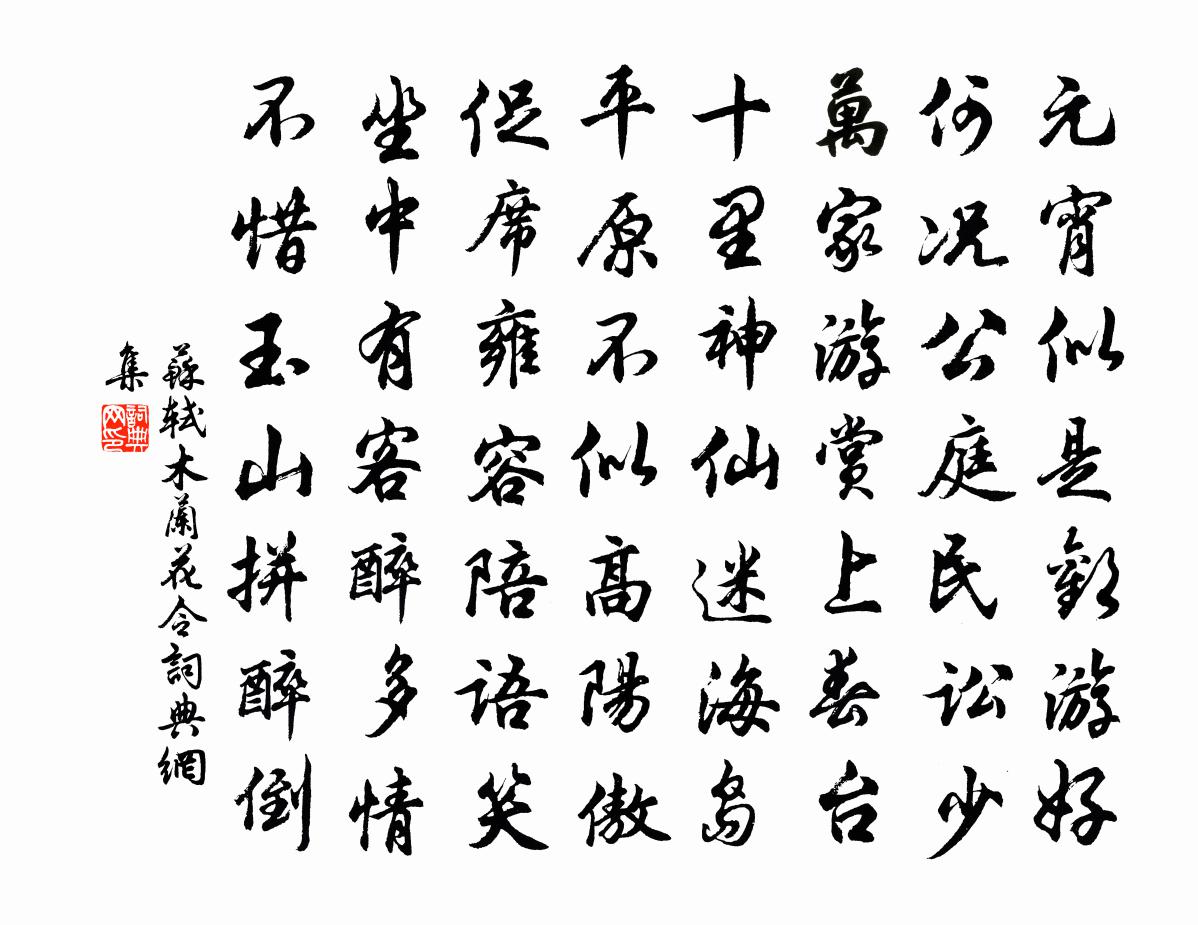 元宵似是歡游好
何况公庭民訟少
萬家游賞上春台
十里神仙迷海島
平原不似高陽傲
促席雍容陪語笑
坐中有客醉多情
不惜玉山拼醉倒
蘇軾木蘭花令詞典網
集
詞典
网印